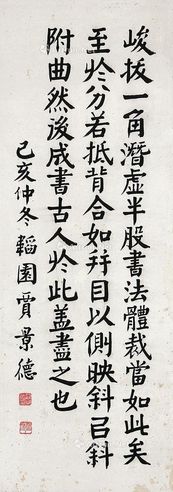 峻拔一角潛虛半股書法體裁當如此矣
至於八分若抵背合如并目以側映斜召斜
附曲然後成書古人於此盖盡之也
己亥仲冬 韜園賈景德